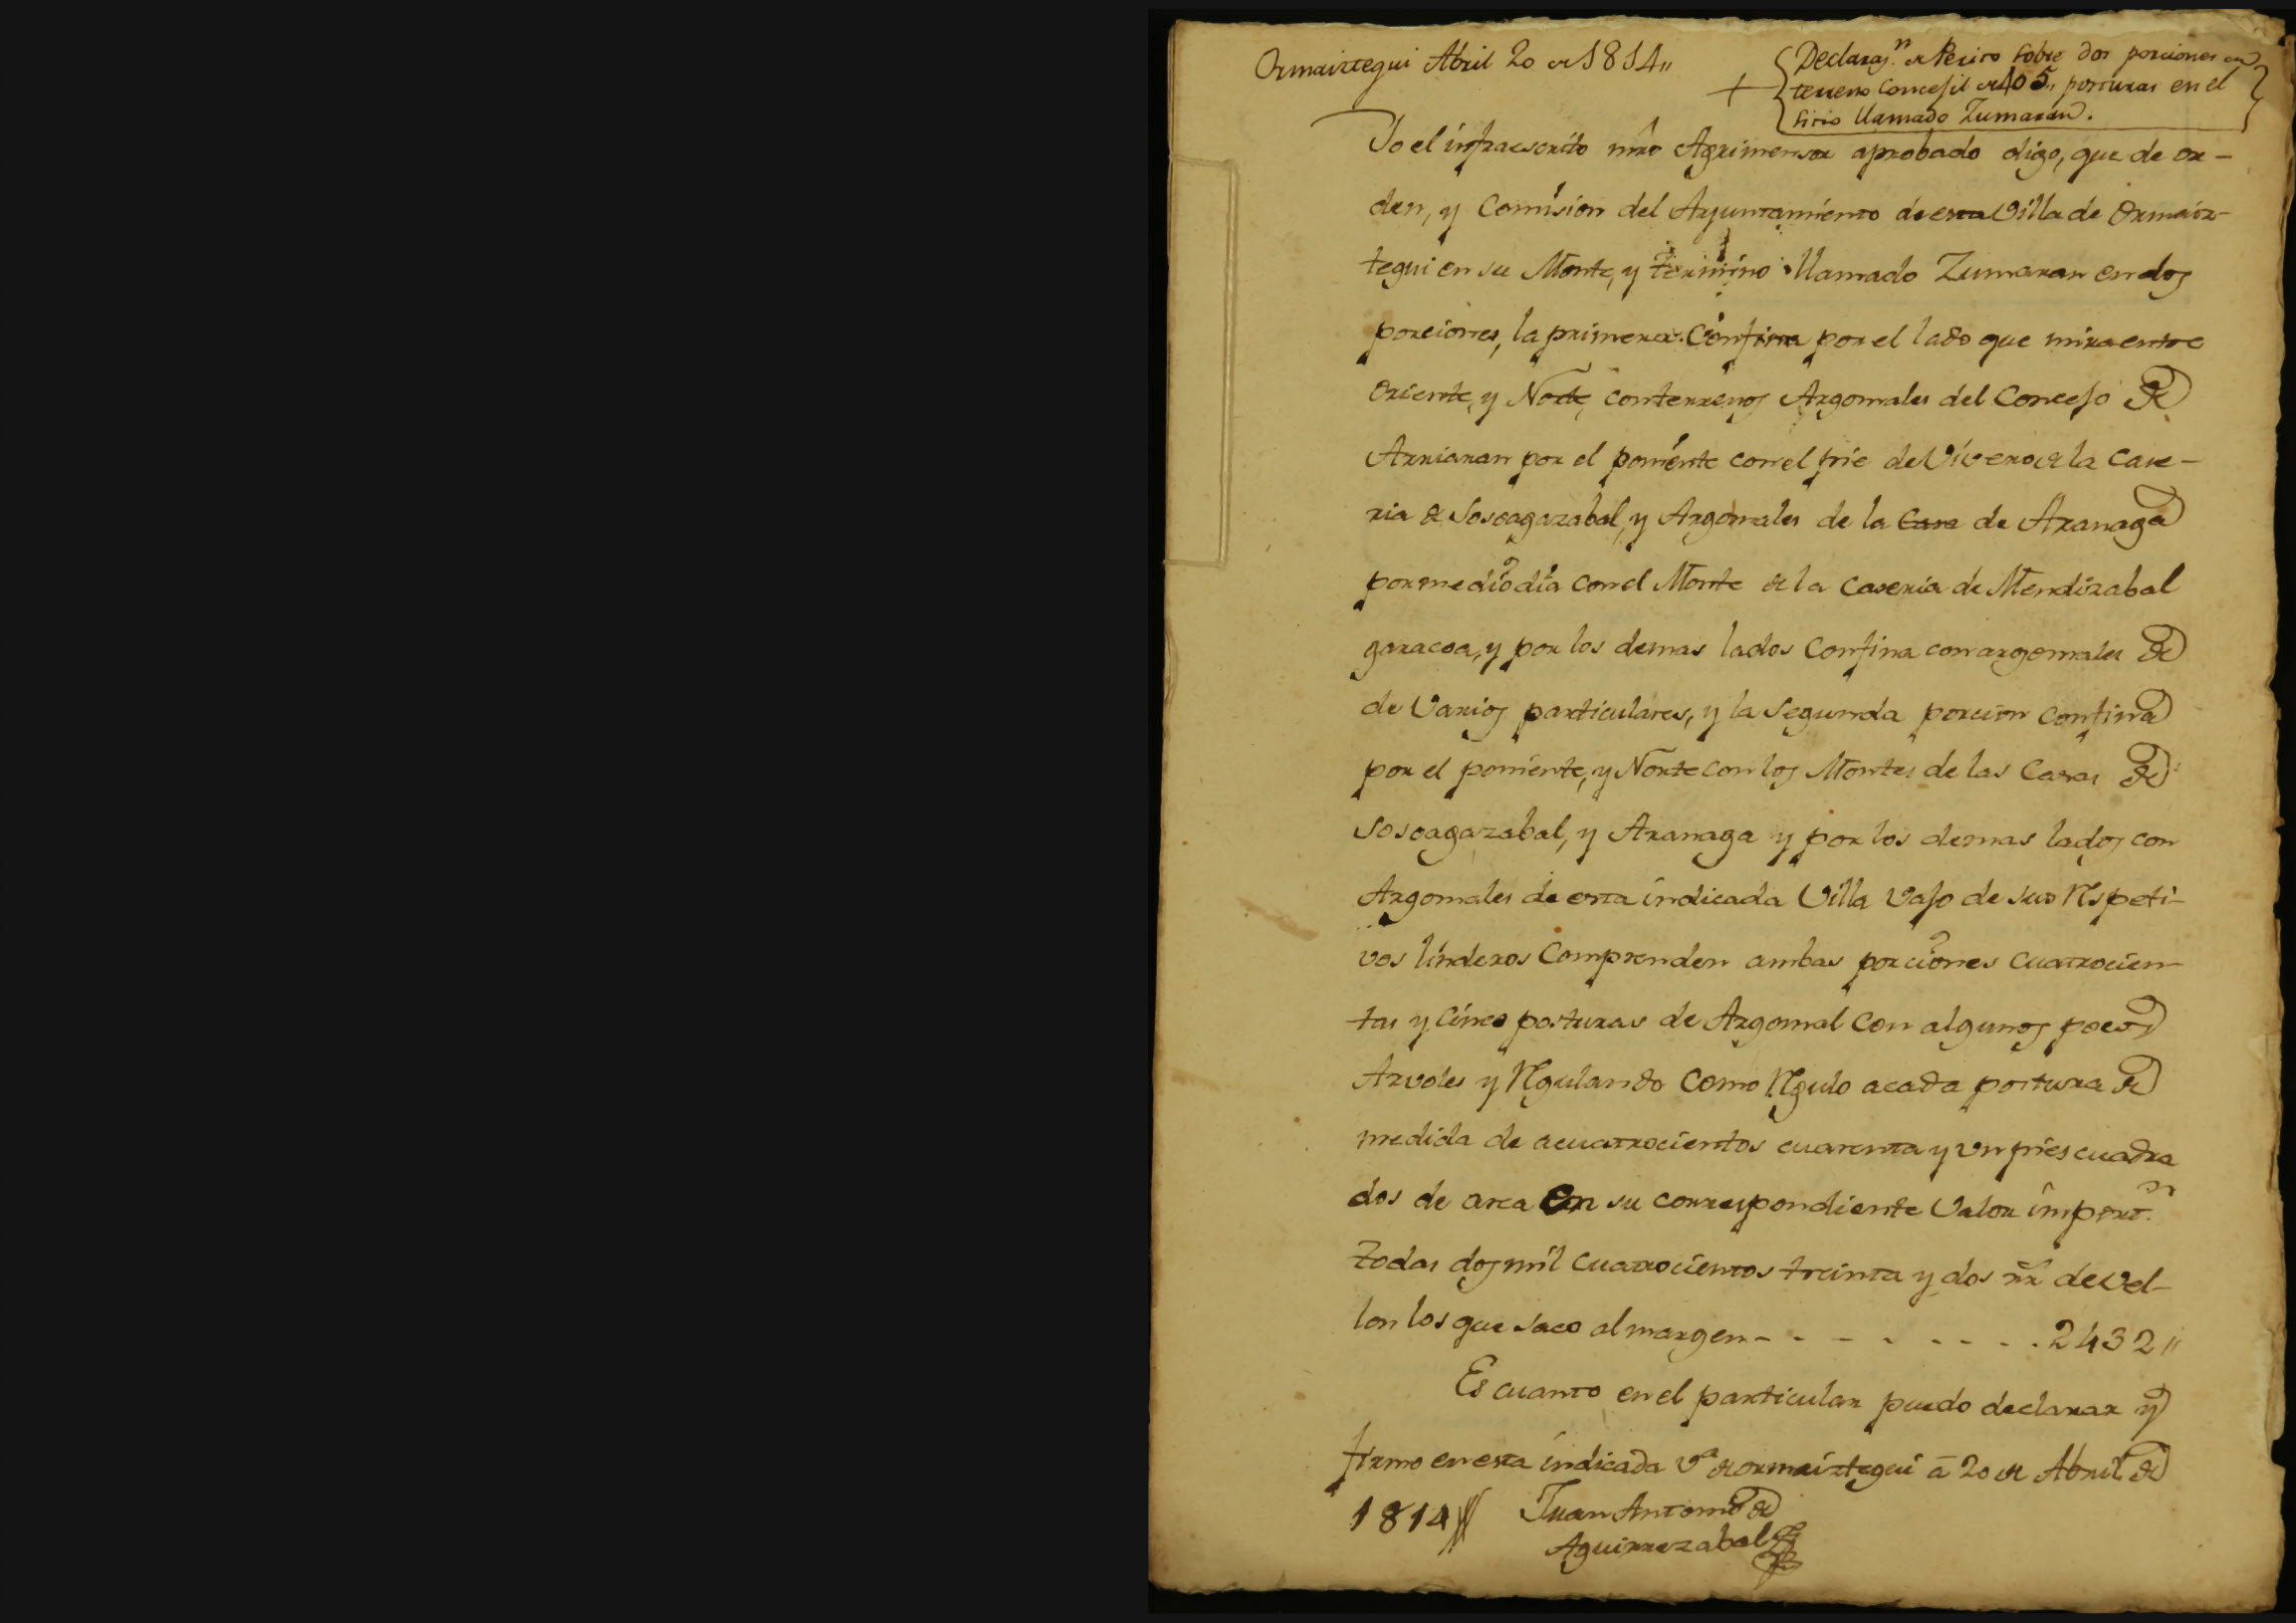 Ormaiztegui Abril 20 de 1814,,
Declaraz.n de Perito sobre dos porciones en
terreno Concejil de 405,, posturas en el
sitio llamado Zumaran.
Yo el infraescrito mro Agrimensor aprobado digo, que de or-
den, y Comision del Ayuntamiento de esta Villa de Ormaiz-
tegui en su Monte, y termino llamado Zumaran en dos
porciones, la primera Confina por el lado que mira entre
oriente, y Norte, con terrenos Argomales del Concejo de
Arriaran por el poniente con el trie de Vivero de la Case-
ria de Sosoagazabal, y Argomales de la Casa de Aranaga
por mediodia con el Monte de la Caseria de Mendizabal
garacoa, y por los demas lados Confina con argomales de
de Varios particulares, y la Segunda porcion Confina
por el poniente, y Norte con los Montes de las Casas de
Sosoagazabal, y Aranaga y por los demas lados con
Argomales de esta indicada Villa Vajo de sus Respeti-
vos linderos Comprenden ambas porciones cuatrocien-
tas y Cinco posturas de Argomal Con algunos pocos
Arvoles y Regulando Como Regulo a cada postura de
medida de acuatrocientos cuarenta y un pies cuadra
dos de area En su correspondiente Valor import.n
todas dos mil Cuatrocientos treinta y dos rr de vel-
lon los que saco al margen - - - - - - - - . 2432,,
Es cuanto en el particular puedo declarar y
firmo en esta indicada V.a de ormaiztegui a 20 de Abril de
1814 Juan Antonio de
Aguirrezabal